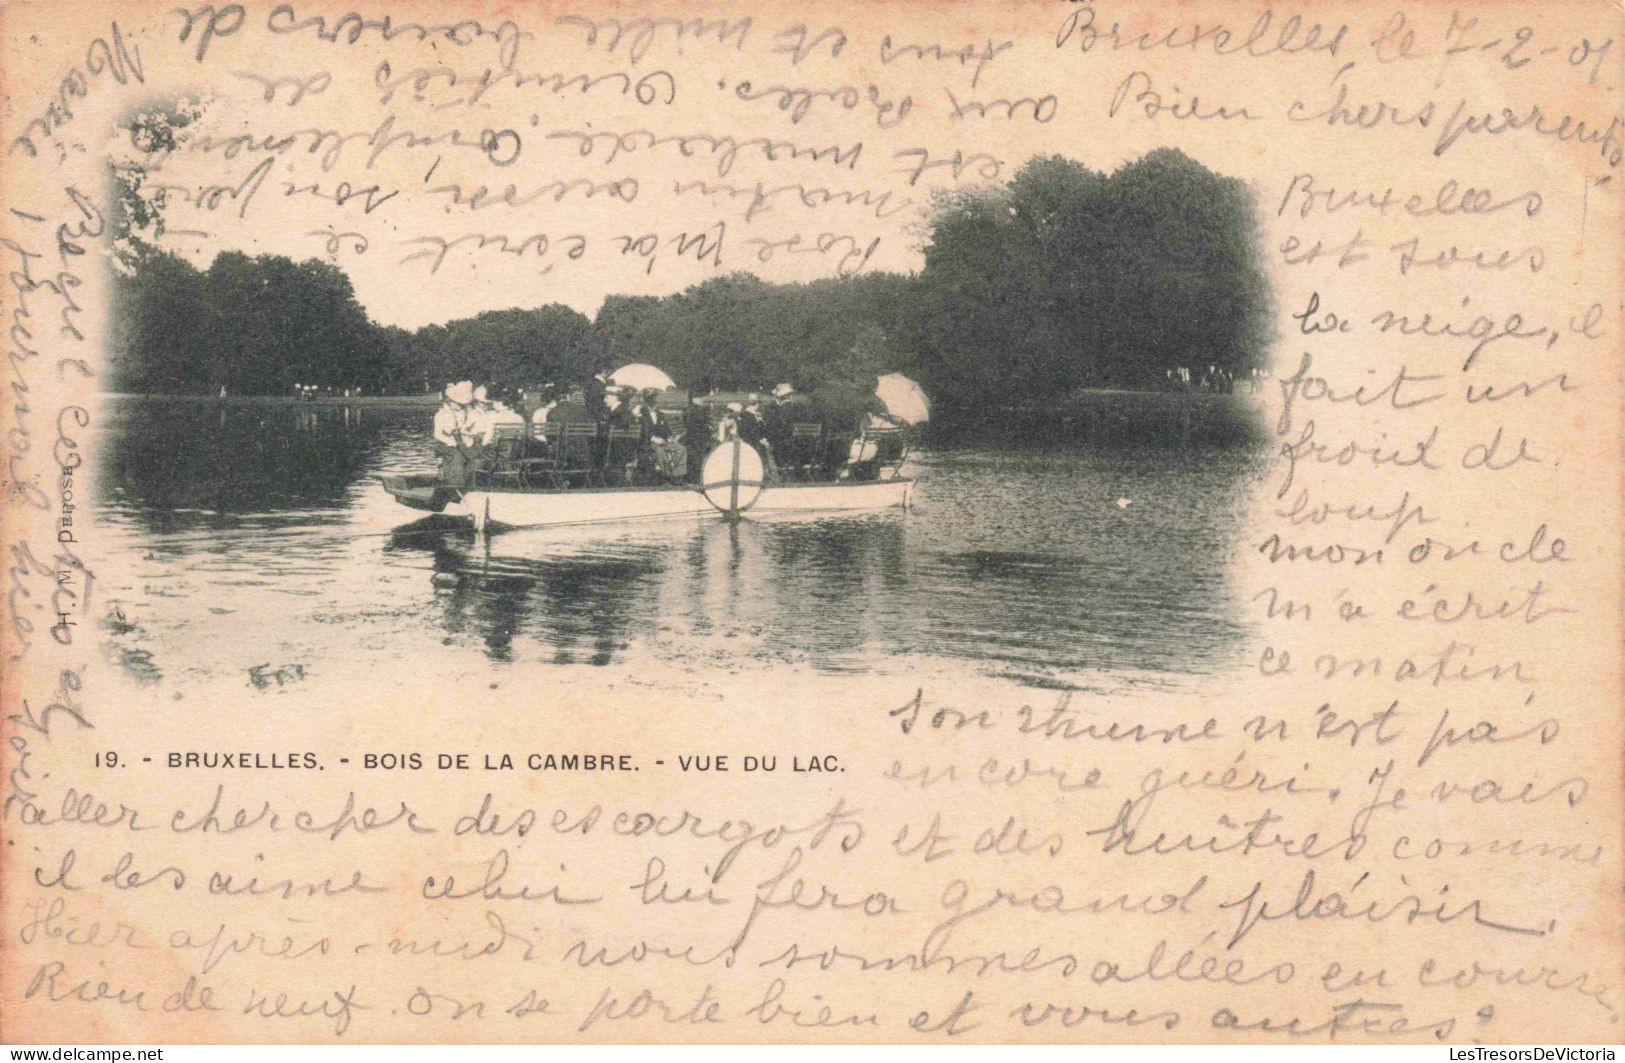 Bruxelles, le 7-2-01
Bien chers parents,
Bruxelles
est sous
la neige, il
fait un
froid de
loup
mon oncle
m'a écrit
ce matin,
son rhume n'est pas
encore guéri. Je vais
aller chercher des escargots et des huîtres comme
il les aime celui lui fera grand plaisir.
Hier après-midi nous sommes allées en course.
Rien de neuf. On se porte bien et vous autres?
Rose m'a écrit ce
matin aussi, son père
est malade. Compliments
aux Amitiés de
tous et mille baisers de
Marie Reçu les et
1 journal hier soir.
19. - BRUXELLES. - BOIS DE LA CAMBRE. - VUE DU LAC.
H. M. DEPOSÉ
LesTresorsDeVictoria
www.delcampe.net